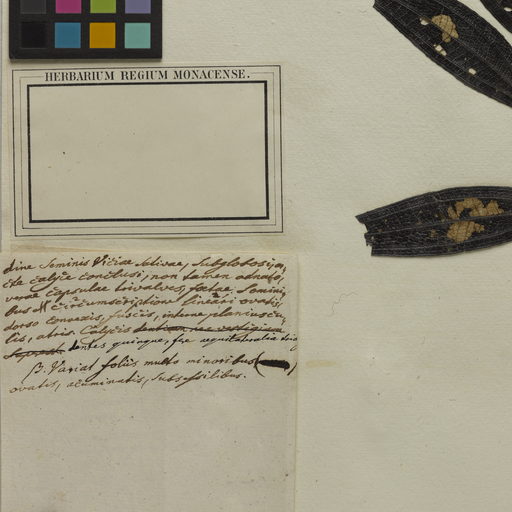 HERBARIUM REGIUM MONACENSE.
dine Seminis Viciae Sativae, Subglobosi, a,
cte calyce conclusi, non tamen adnato,
verae capsulae trivalves, foetae Semini,
bus circumscriptione lineari ovatis,
dorso convexis, fuscis, interne planiuscu,
lis, atris. Calycis dentium nec vestigium
dentes quinque, fere aequilaterales
β. Variat foliis multo minoribus (
ovatis, acuminatis, subsessilibus.